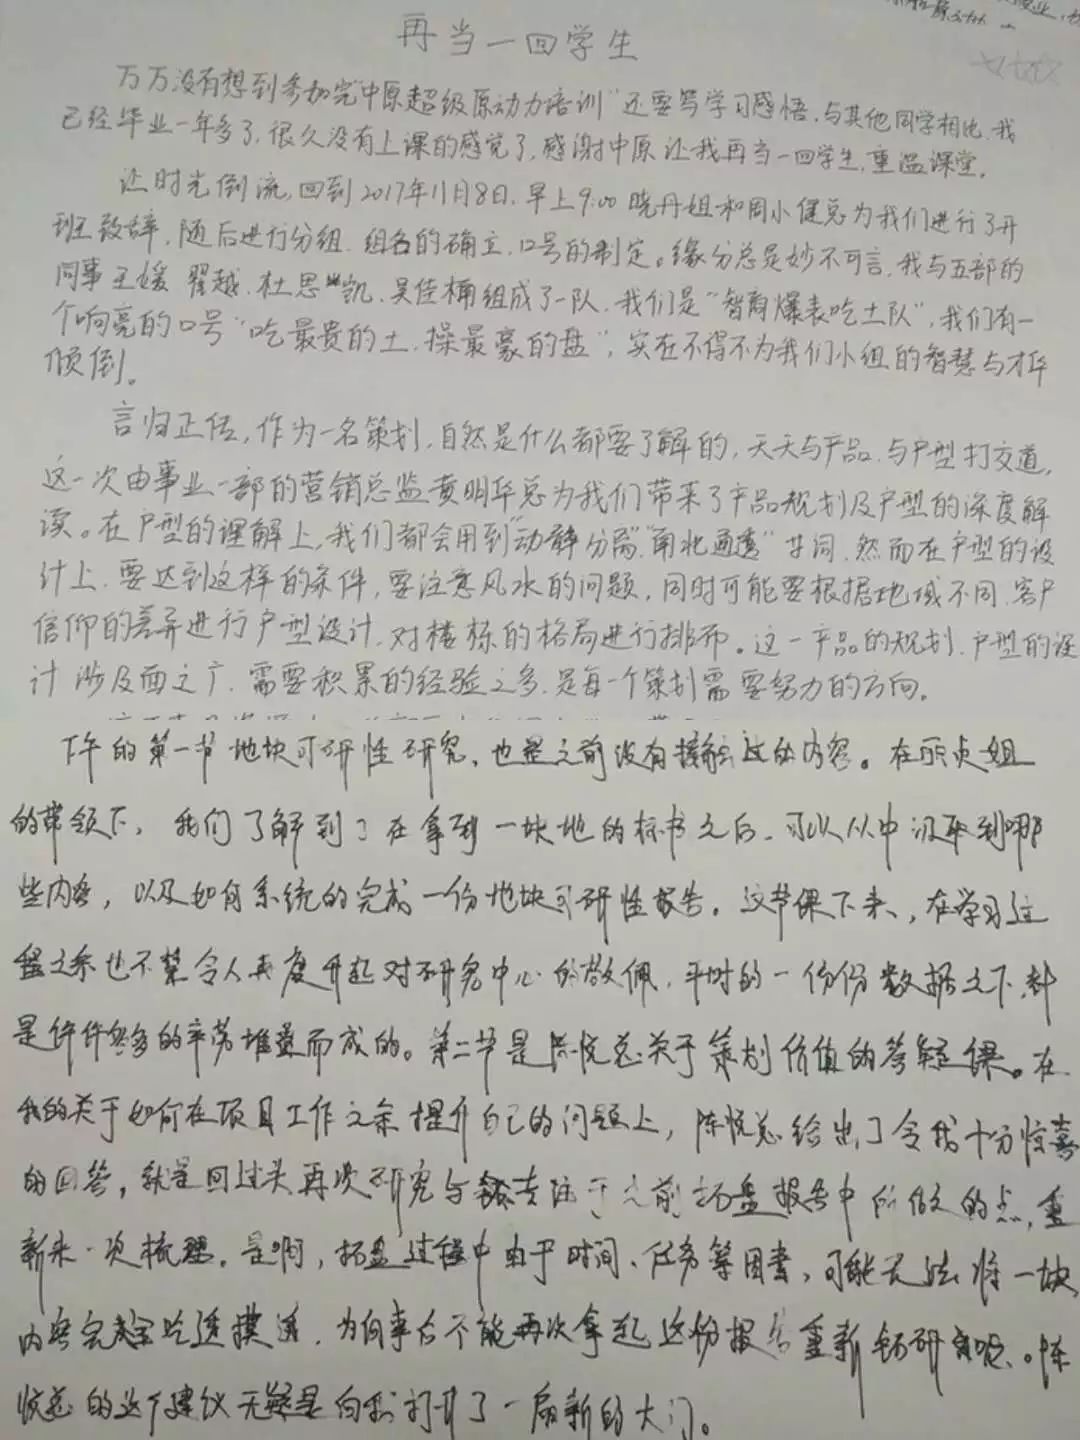 再当一回学生
万万没有想到参加完"中原超级原动力培训"还要写学习感悟,与其他同学相比,我
已经毕业一年多了,很久没有上课的感觉了,感谢中原让我再当一回学生,重温课堂。
让时光倒流,回到2017年11月8日,早上9:00晓丹姐和周小健总为我们进行了开
班致辞,随后进行分组、组名的确立、口号的制定。缘分总是妙不可言,我与五部的
同事王媛、翟越、杜思凯、吴佳桶组成了一队,我们是"智商爆表吃土队",我们有一
个响亮的口号"吃最贵的土,操最豪的盘",实在不得不为我们小组的智慧与才华
倾倒。
言归正传,作为一名策划,自然是什么都要了解的,天天与产品、与户型打交道,
这一次由事业一部的营销总监黄明华总为我们带来了产品规划及户型的深度解
读。在户型的理解上,我们都会用到"动静分离""南北通透"等词,然而在户型的设
计上,要达到这样的条件,要注意风水的问题,同时可能要根据地域不同、客户
信仰的差异进行户型设计,对楼栋的格局进行排布。这一产品的规划、户型的设
计涉及面之广,需要积累的经验之多,是每一个策划需要努力的方向。
下午的第一节地块可研性研究,也是之前没有接触过的内容。在贞姐
的带领下,我们了解到了在拿到一块地的标书之后,可以从中汲取到哪
些内容,以及如何系统的完成一份地块可研性报告。这节课下来,在学习过
程之余也不禁令人再度升起对研究中心的敬佩,平时的一份份数据之下,都
是许许多多的辛劳堆叠而成的。第二节是陈悦总关于策划价值的答疑课。在
我的关于如何在项目工作之余提升自己的问题上,陈悦总给出了令我十分惊喜
的回答,就是回过头再次研究与专注于之前拓盘报告中所做的点,重
新来一次梳理。是啊,拓盘过程中由于时间、任务等因素,可能无法将一块
内容完全吃透摸透,为何事后不能再次拿起这份报告重新钻研呢。陈
悦总的这个建议无疑是向我打开了一扇新的大门。